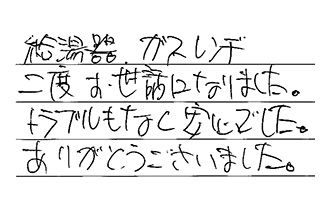 給湯器、ガスレンヂ
二度お世話になりました。
トラブルもなく安心でした。
ありがとうございました。